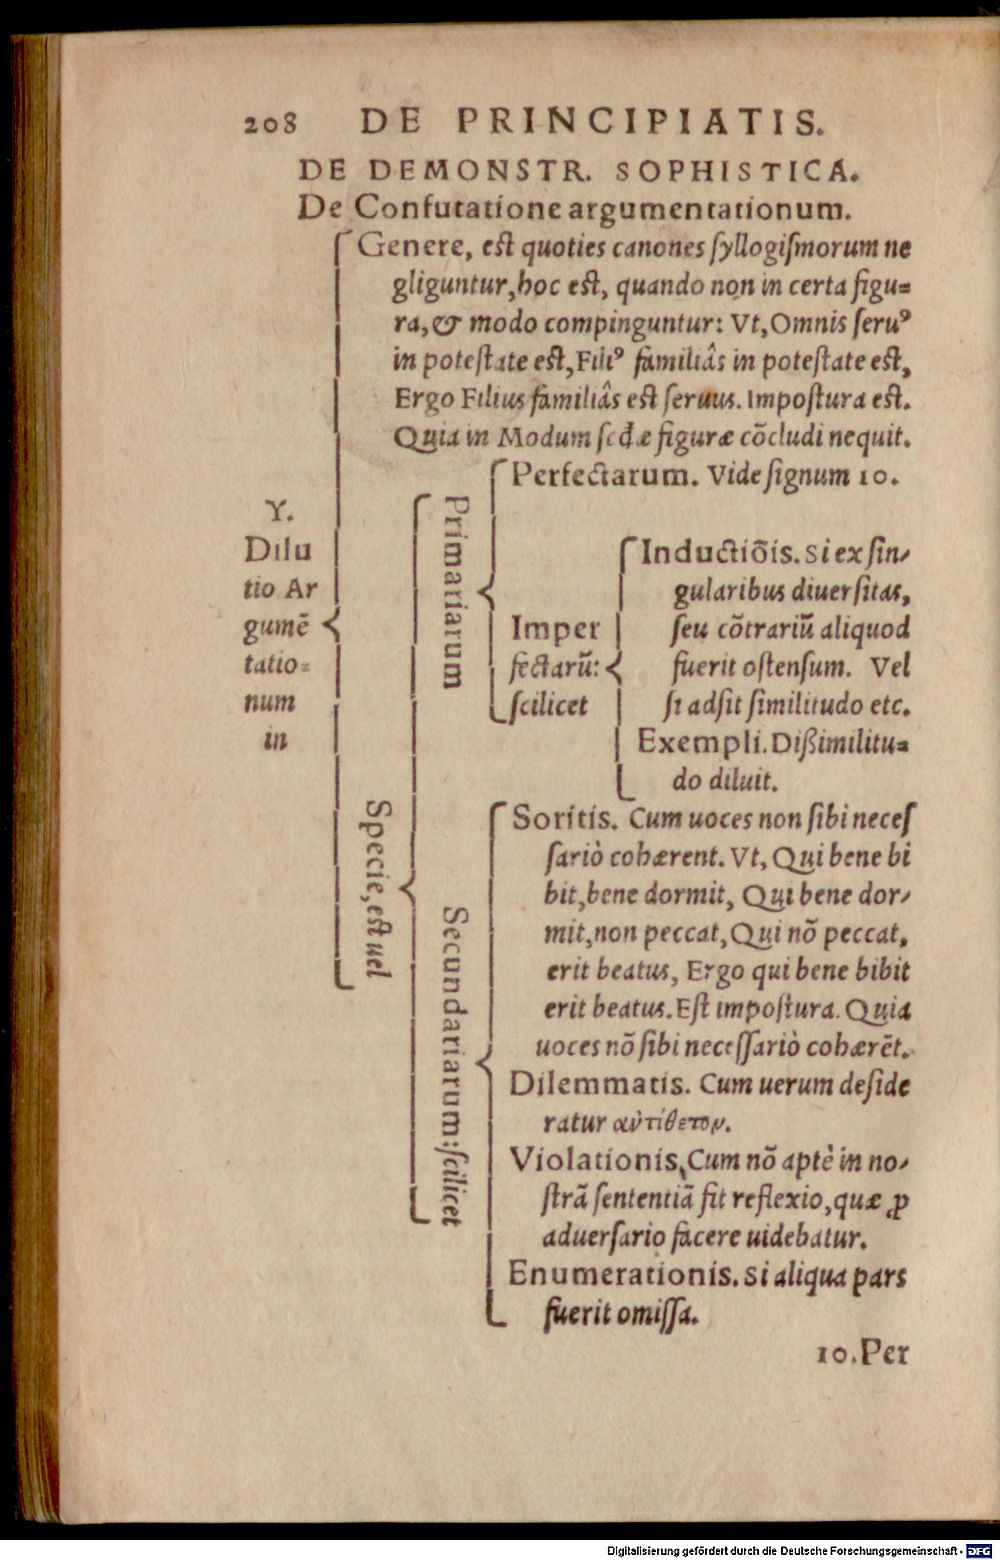 208 DE PRINCIPIATIS.
DE DEMONSTR. SOPHISTICA.
De Confutatione argumentationum.
Genere, est quoties canones syllogismorum ne
gliguntur, hoc est, quando non in certa figu=
ra, & modo compinguntur: Vt, Omnis seruꝰ
in potestate est, Filiꝰ familiâs in potestate est,
Ergo Filius familiâs est seruus. Impostura est.
Quia in Modum scd̄æ figuræ cōcludi nequit.
Y.
Dilu
tio Ar
gumē
tatio=
num
in
Specie, est uel
Primariarum
Perfectarum. Vide signum 10.
Imper
fectarū:
scilicet
Inductiōis. Si ex sin-
gularibus diuersitas,
seu cōtrariū aliquod
fuerit ostensum. Vel
si adsit similitudo etc.
Exempli. Dißimilitu=
do diluit.
Secundariarum: scilicet
Soritis. Cum uoces non sibi neces
sariò cohærent. Vt, Qui bene bi
bit, bene dormit, Qui bene dor-
mit, non peccat, Qui nō peccat,
erit beatus, Ergo qui bene bibit
erit beatus. Est impostura. Quia
uoces nō sibi necessariò cohærēt.
Dilemmatis. Cum uerum deside
ratur αὐτίθετον.
Violationis, Cum nō aptè in no-
strā sententiā fit reflexio, quæ ꝓ
aduersario facere uidebatur.
Enumerationis. Si aliqua pars
fuerit omissa.
10. Per
Digitalisierung gefördert durch die Deutsche Forschungsgemeinschaft - DFG